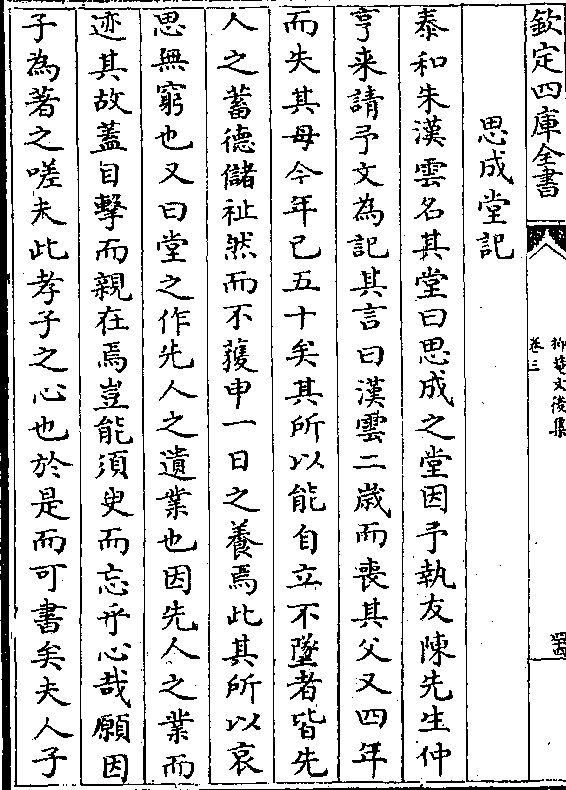 欽定四庫全書
抑菴文後集
卷三
思成堂記
泰和朱漢雲名其堂曰思成之堂因予執友陳先生仲
亨来請予文為記其言曰漢雲二歲而喪其父又四年
而失其母今年已五十矣其所以能自立不墜者皆先
人之蓄德儲祉然而不獲申一日之養焉此其所以哀
思無窮也又曰堂之作先人之遺業也因先人之業而
迹其故蓋目擊而親在焉豈能須臾而忘乎心哉願因
子為著之嗟夫此孝子之心也於是而可書矣夫人子